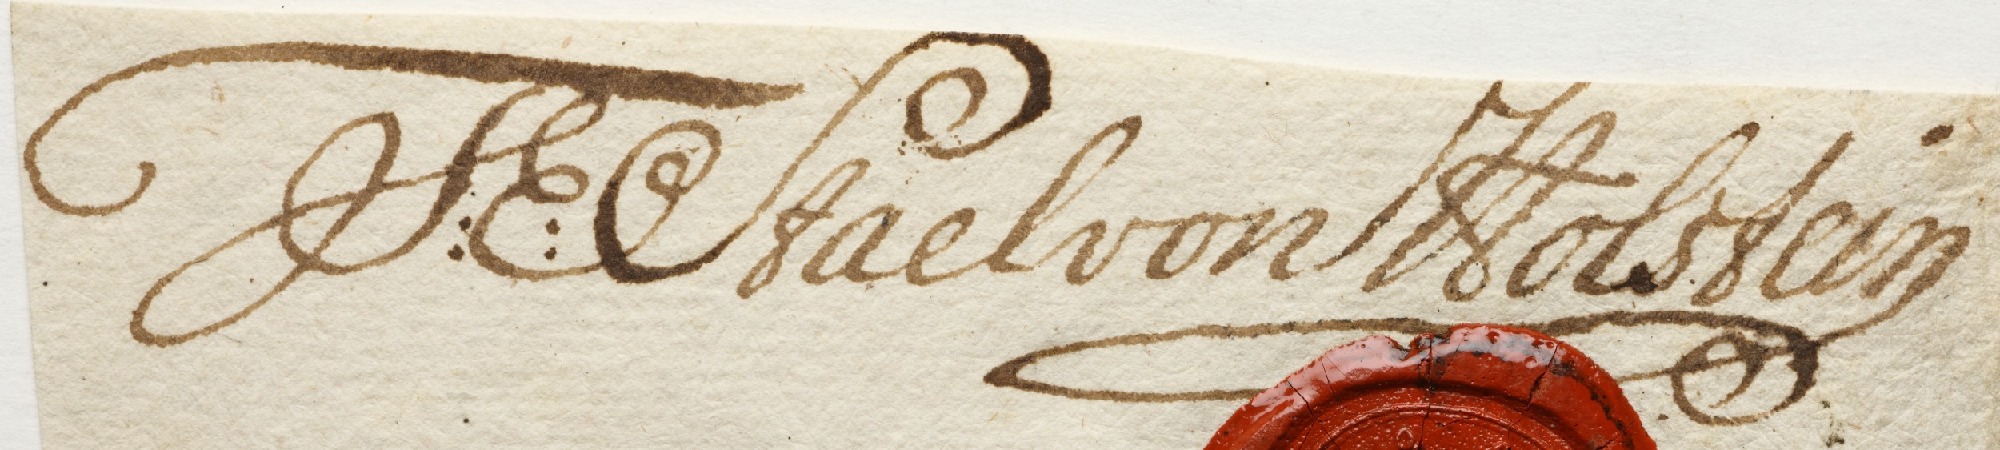 F: E: Stael von Holstein